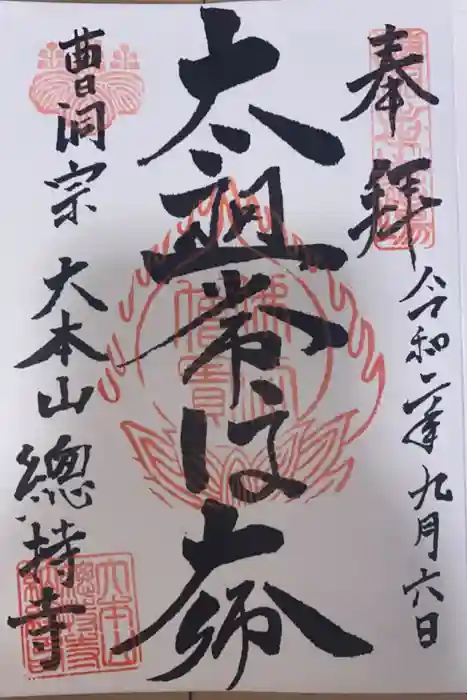 奉拜
令和二年九月六日
太祖常済大師
曹洞宗
大本山
總持寺
佛法僧寶